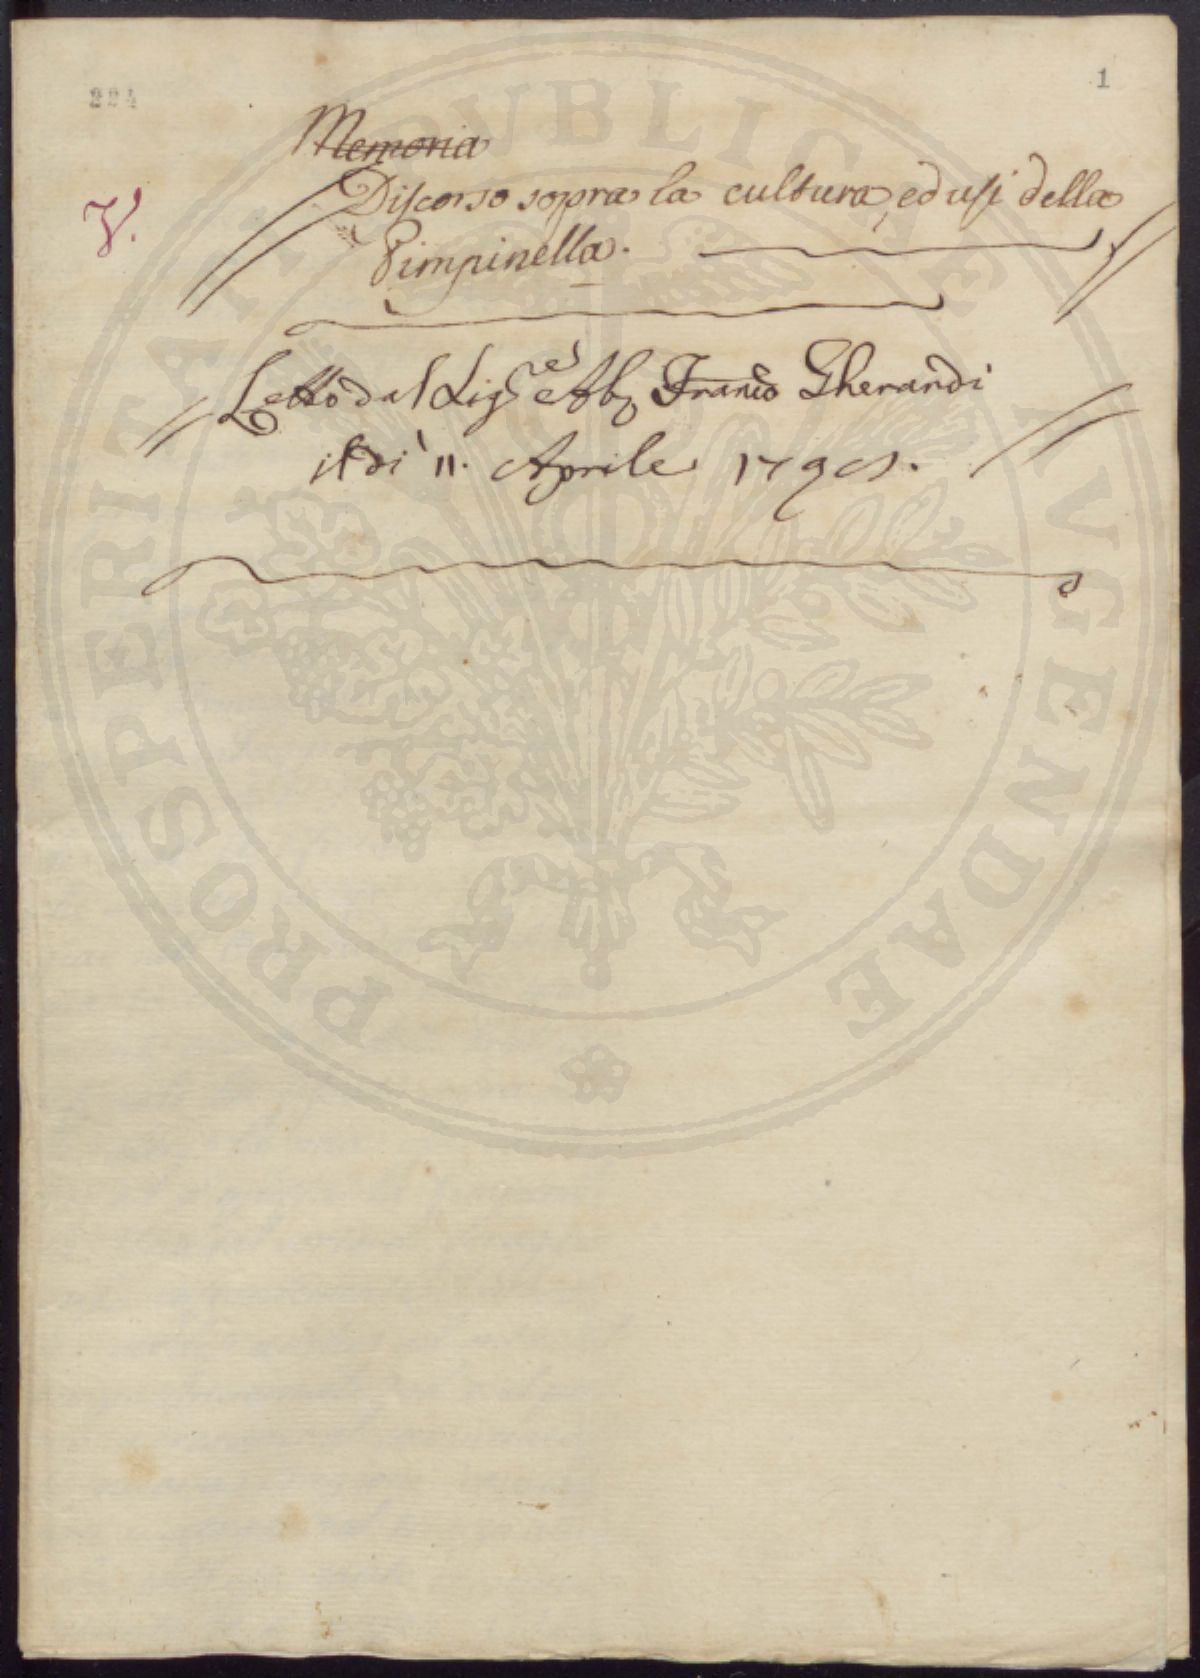 224
1
Memoria
V.
Discorso sopra la cultura, ed usi della
Pimpinella.
Letto dal Sig.re Ab. Franco Gherardi
il dì 11. Aprile
PROSPERITATI PVBLICAE AVGENDAE